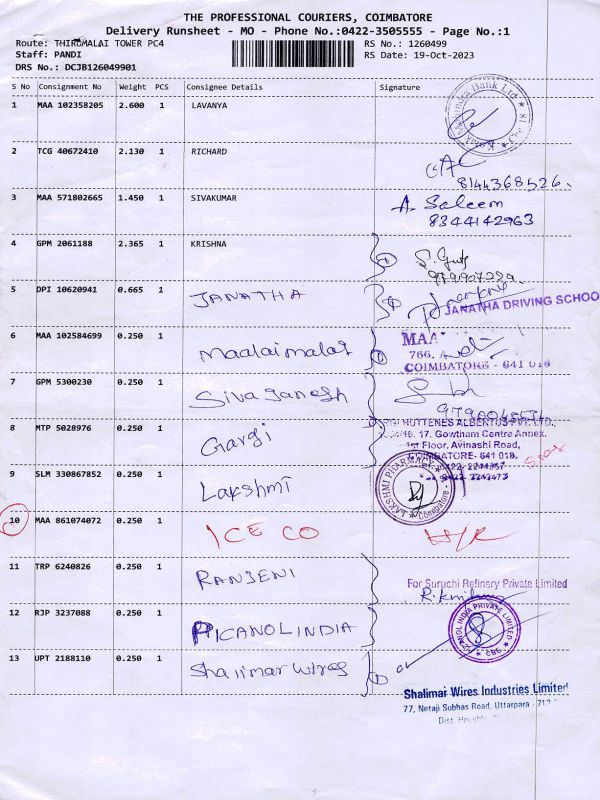 THE PROFESSIONAL COURIERS, COIMBATORE
Delivery Runsheet - MO - Phone No.:0422-3505555 - Page No.:1
Route: THIRUMALAI TOWER PC4 RS No.: 1260499
Staff: PANDI RS Date: 19-Oct-2023
DRS No.: DCJB126049901
S No Consignment No Weight PCS Consignee Details Signature
1 MAA 102358205 2.600 1 LAVANYA
Bank Ltd
2 TCG 40672410 2.130 1 RICHARD
8144368526.
3 MAA 571802665 1.450 1 SIVAKUMAR A. Saleem
8344142963
4 GPM 2061188 2.365 1 KRISHNA
5 DPI 10620941 0.665 1 JANATHA
JANATHA DRIVING SCHOO
6 MAA 102584699 0.250 1 Maalaimalar MAA
766,
COIMBATORE - 641 018
7 GPM 5300230 0.250 1 Siva Ganesh
8 MTP 5028976 0.250 1 Gargi
HUTTENES ALBERTUS PVT. LTD.,
17, Gowtham Centre Annex,
1st Floor, Avinashi Road,
COIMBATORE- 641 018.
9 SLM 330867852 0.250 1 Lakshmi LAKSHMI PHARMACY
Coimbatore
10 MAA 861074072 0.250 1 ICE CO
11 TRP 6240826 0.250 1 RANJENI
For Suruchi Refinery Private Limited
12 RJP 3237088 0.250 1 PICANOL INDIA
INDIA PRIVATE LIMITED
CBE
13 UPT 2188110 0.250 1 Shalimar Wires
Shalimar Wires Industries Limited
77, Netaji Subhas Road, Uttarpara - 712